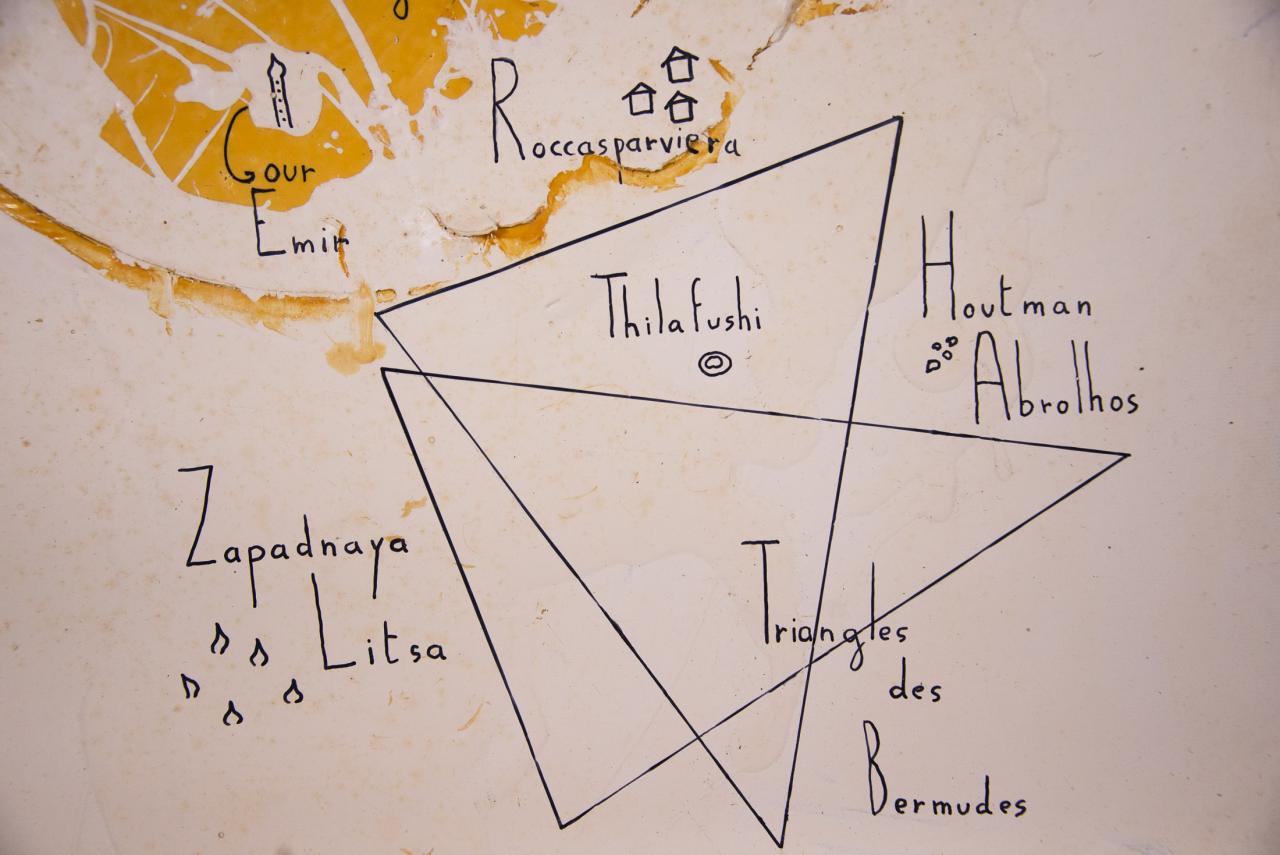 Gour
Emir
Roccasparviera
Thilafushi
Houtman
Abrolhos
Zapadnaya
Litsa
Triangles
des
Bermudes